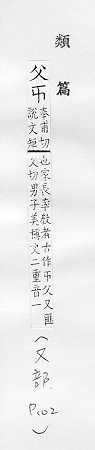 類篇
父
奉甫切
說文矩
也家長率教者古作父又匪
父切男子美稱文二重音一
(又部 P102)